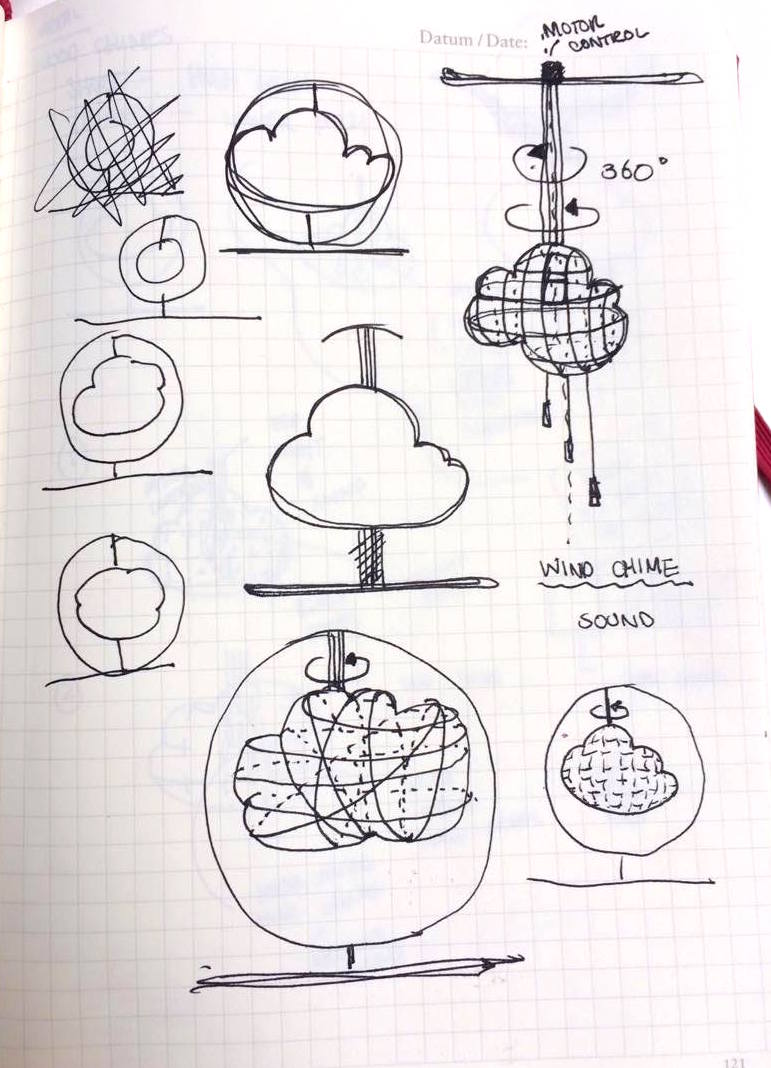 Datum / Date:
MOTOR
CONTROL
360°
WIND CHIME
SOUND
121